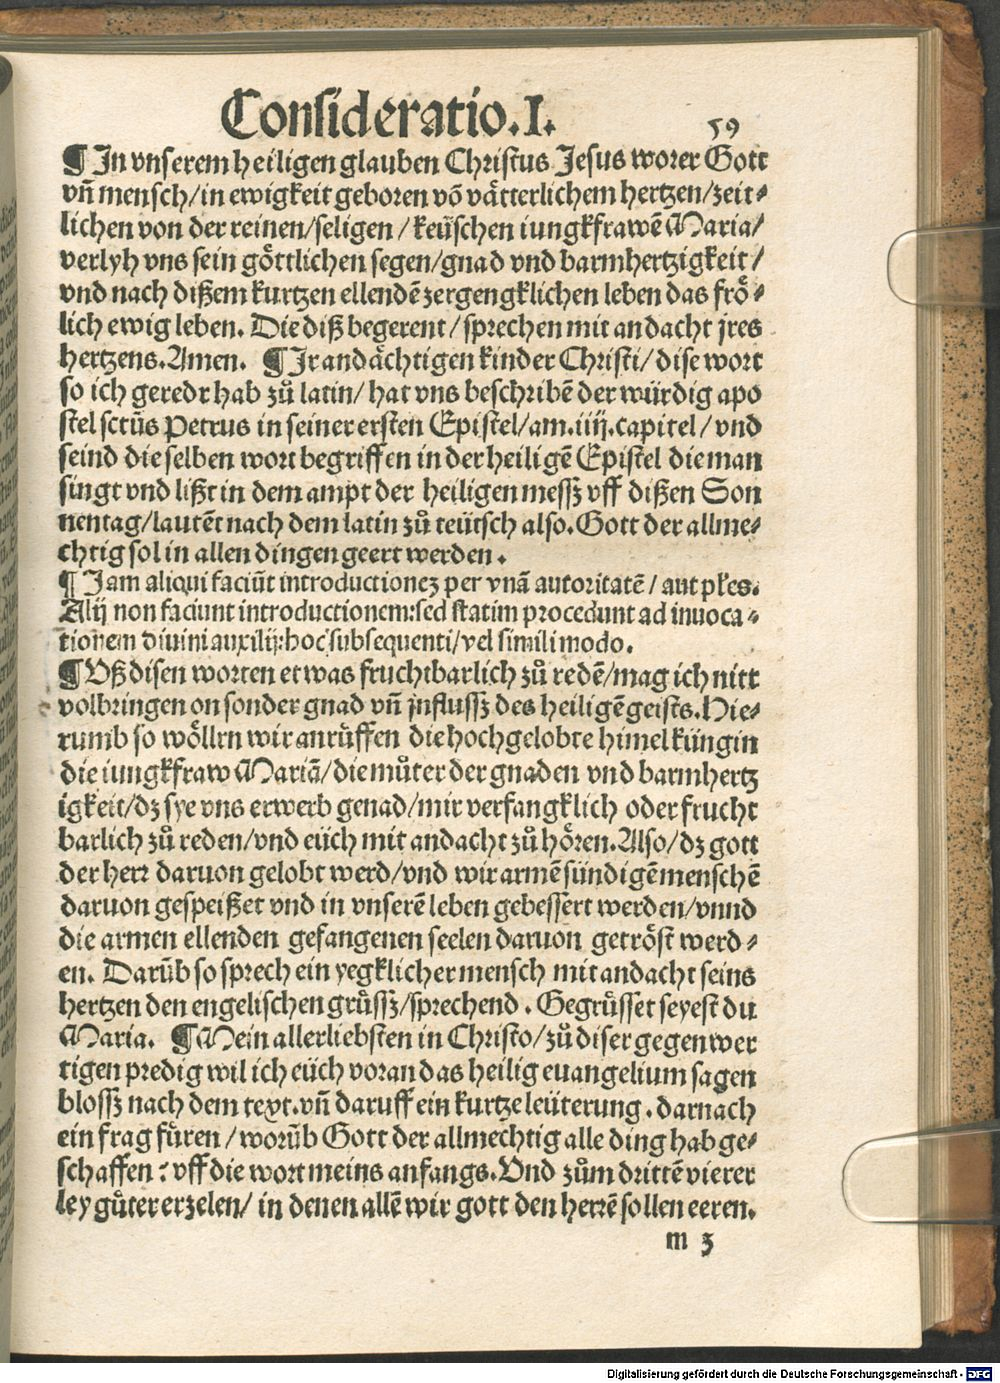 Consideratio.I.
59
¶ In vnserem heiligen glauben Christus Jesus worer Gott
vñ mensch/in ewigkeit geboren võ vätterlichem hertzen/zeit⸗
lichen von der reinen/seligen/keüschen iungkfrawẽ Maria/
verlyh vns sein göttlichen segen/gnad vnd barmhertzigkeit/
vnd nach dißem kurtzen ellendẽ zergengklichen leben das frö⸗
lich ewig leben. Die diß begerent/sprechen mit andacht jres
hertzens. Amen. ¶ Ir andächtigen kinder Christi/dise wort
so ich geredt hab zů latin/hat vns beschribẽ der würdig apo
stel sctũs Petrus in seiner ersten Epistel/am.iiij.capitel/vnd
seind die selben wort begriffen in der heiligẽ Epistel die man
singt vnd lißt in dem ampt der heiligen messz vff dißen Son
nentag/lautẽt nach dem latin zů teütsch also. Gott der allme⸗
chtig sol in allen dingen geert werden.
¶ Iam aliqui faciũt introductionez per vnã autoritatẽ/aut płes.
Alij non faciunt introductionem:sed statim procedunt ad inuoca⸗
tionem diuini auxilij:hoc subsequenti/vel simili modo.
¶ Vß disen worten etwas fruchtbarlich zů redẽ/mag ich nitt
volbringen on sonder gnad vñ jnflussz des heiligẽ geists. Hie⸗
rumb so wöllen wir anrůffen die hochgelobte himel küngin
die iungkfraw Mariã/die můter der gnaden vnd barmhertz
igkeit/dz sye vns erwerb genad/mir verfangklich oder frucht
barlich zů reden/vnd eüch mit andacht zů hören. Also/dz gott
der herr daruon gelobt werd/vnd wir armẽ sündigẽ menschẽ
daruon gespeißet vnd in vnserẽ leben gebessert werden/vnnd
die armen ellenden gefangenen seelen daruon getröst werd⸗
en. Darũb so sprech ein yegklicher mensch mit andacht seins
hertzen den engelischen grůssz/sprechend. Gegrůsset seyest du
Maria. ¶ Mein allerliebsten in Christo/zů diser gegenwer
tigen predig wil ich eüch voran das heilig euangelium sagen
blossz nach dem text. vñ daruff ein kurtze leüterung. darnach
ein frag fůren/worũb Gott der allmechtig alle ding hab ge⸗
schaffen: vff die wort meins anfangs. Vnd zům drittẽ vierer
ley gůter erzelen/in denen allẽ wir gott den herrẽ sollen eeren.
m 3
Digitalisierung gefördert durch die Deutsche Forschungsgemeinschaft - DFG